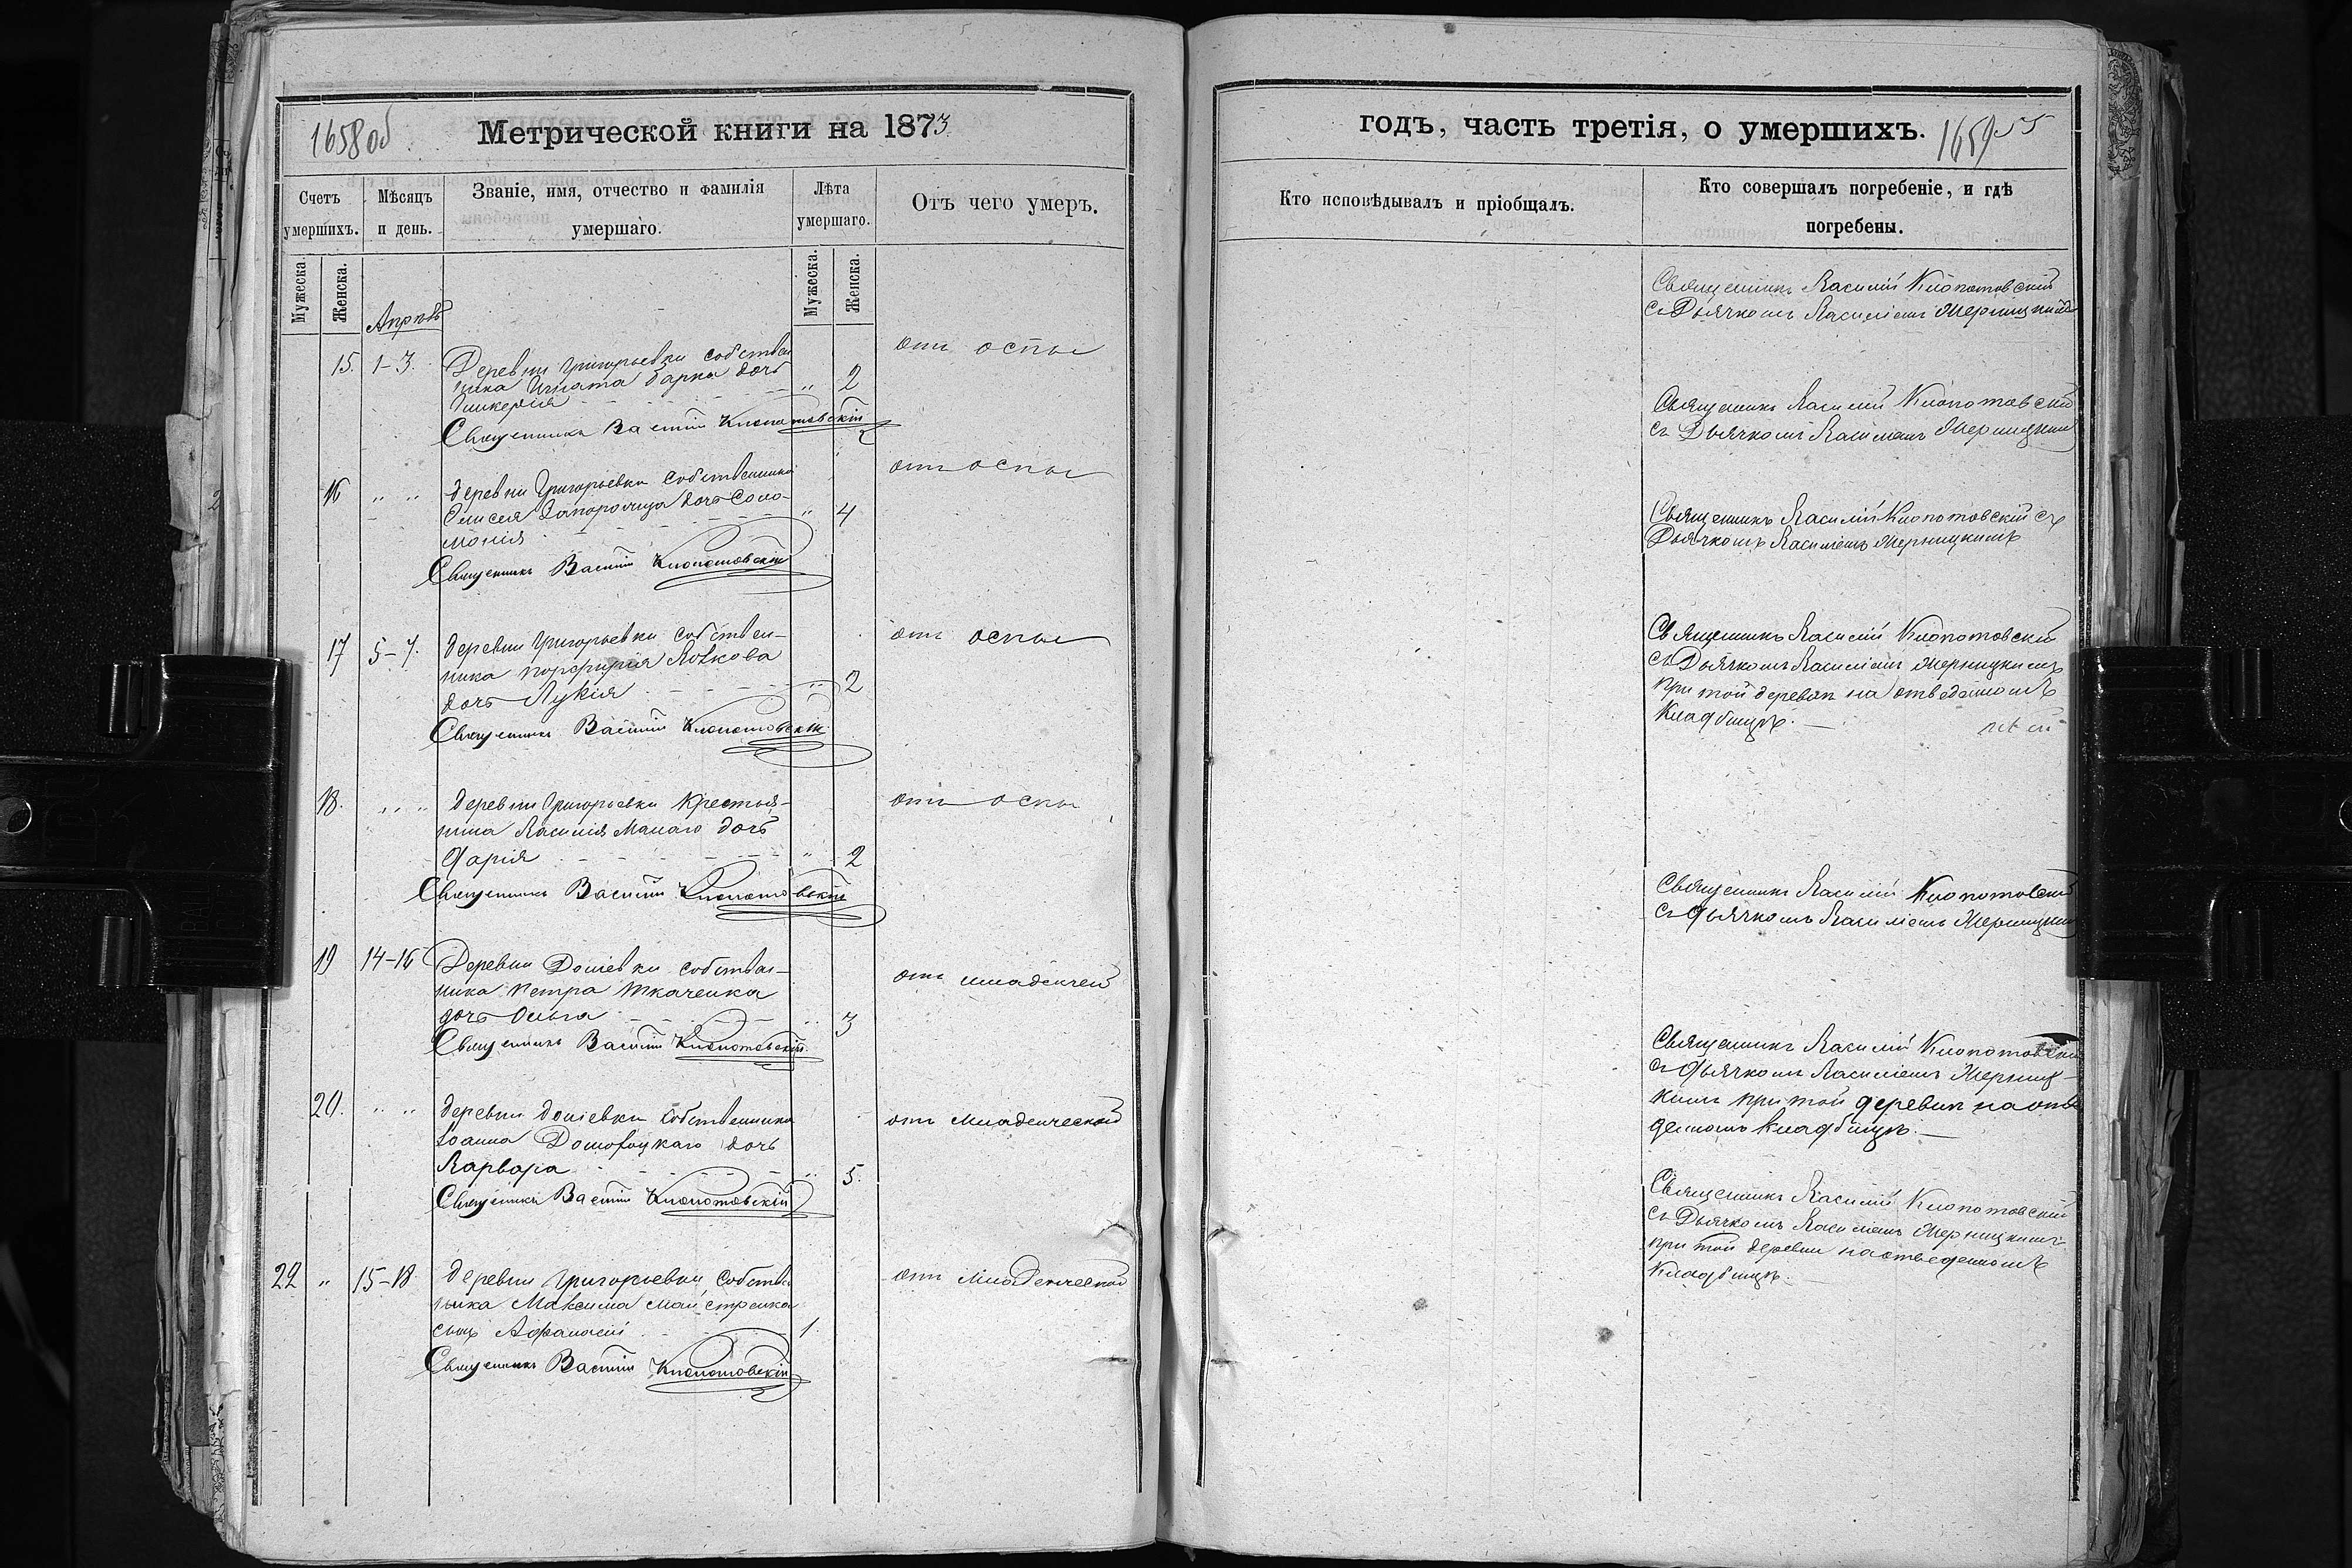 1658 об
Метрической книги на 1873
Счетъ умершихъ.
Мѣсяцъ и день.
Званіе, имя, отчество и фамилія умершаго.
Лѣта умершаго.
Отъ чего умеръ.
Мужеска.
Женска.
Мужеска.
Женска.
Апрѣль
15. 1-3. Деревни Григорьевки собствен
ника Игната Барна дочь
Гликерія " 2
отъ оспы
Священникъ Василій Клопотовскій
16 " " деревни Григорьевки собственника
Елисея Запорожца дочь Соло-
монія " 4
отъ оспы
Священникъ Василій Клопотовскій
17 5-7. деревни Григорьевки собствен-
ника Порфирія Вовкова
дочь Лукія " 2
отъ оспы
Священникъ Василій Клопотовскій
18. " " деревни Григорьевки крестья-
нина Василія Малаго дочь
Дарія " 2
отъ оспы
Священникъ Василій Клопотовскій
19 14-16 Деревни Доліевки собствен-
ника Петра Ткаченка
дочь Ольга " 3
отъ младенчей
Священникъ Василій Клопотовскій
20. " " деревни Доліевки собственника
Іоанна дочь
Варвара " 5.
отъ младенческой
Священникъ Василій Клопотовскій
22 " 15-18 деревни Григорьевки собствен
ника Максима Майстренка
сынъ Афанасій 1.
отъ младенческой
Священникъ Василій Клопотовскій
годъ, часть третія, о умершихъ.
1659 55
Кто исповѣдывалъ и пріобщалъ.
Кто совершалъ погребеніе, и гдѣ погребены.
Священникъ Василій Клопотовскій
съ Дьячкомъ Василіемъ Жерницкимъ
Священникъ Василій Клопотовскій
съ Дьячкомъ Василіемъ Жерницкимъ
Священникъ Василій Клопотовскій съ
Дьячкомъ Василіемъ Жерницкимъ
Священникъ Василій Клопотовскій
съ Дьячкомъ Василіемъ Жерницкимъ
при той деревни на отведенномъ
Кладбищѣ.
Священникъ Василій Клопотовскій
съ Дьячкомъ Василіемъ Жерницким
Священникъ Василій Клопотовскій
съ Дьячкомъ Василіемъ Жерниц-
кимъ при той деревни на отве
денномъ Кладбищѣ.
Священникъ Василій Клопотовскій
съ Дьячкомъ Василіемъ Жерницкимъ
при той деревни на отведенномъ
Кладбищѣ.